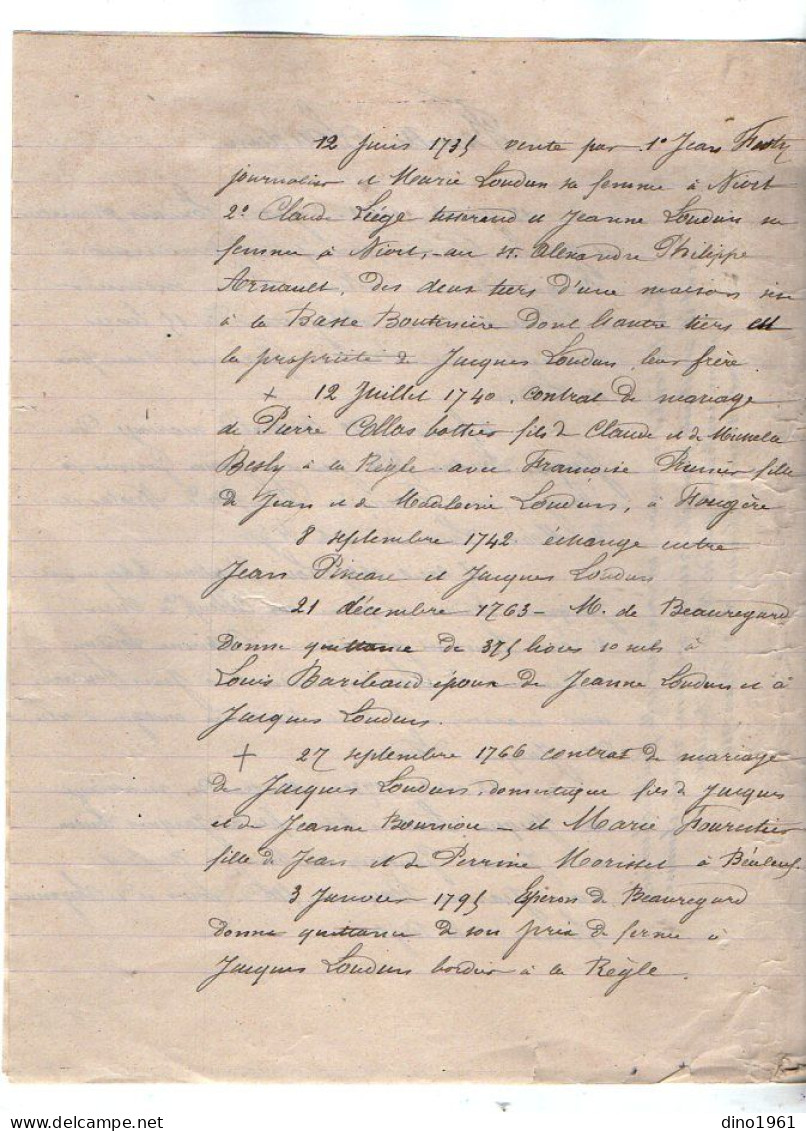 12 Juin 1735 vente par 1° Jean
journalier et Marie Loudun sa femme à Niort
2° Claude Liège tisserand et Jeanne Loudun sa
femme à Niort, - au sr. Alexandre Philippe
Arnault, des deux tiers d'une maison sise
à la Basse Boutinière dont l'autre tiers est
la propriété de Jacques Loudun, leur frère.
+ 12 Juillet 1740, contrat de mariage
de Pierre Collas bottier fils de Claude et de Michela
Besly à la Règle avec Françoise fille
de Jean et de Madeleine Loudun, à Fougère
8 septembre 1742 échange entre
Jean et Jacques Loudun
21 décembre 1763 - M. de Beauregard
donne quittance de 375 livres 10 sols à
Louis Baribaud époux de Jeanne Loudun et à
Jacques Loudun.
+ 27 septembre 1766 contrat de mariage
de Jacques Loudun, domestique fils de Jacques
et de Jeanne - et Marie Fourestier
fille de Jean et de Perrine Morisset à
3 Janvier 1795 Espéron de Beauregard
donne quittance de son prix de ferme à
Jacques Loudun bordier à la Règle.
dino1961